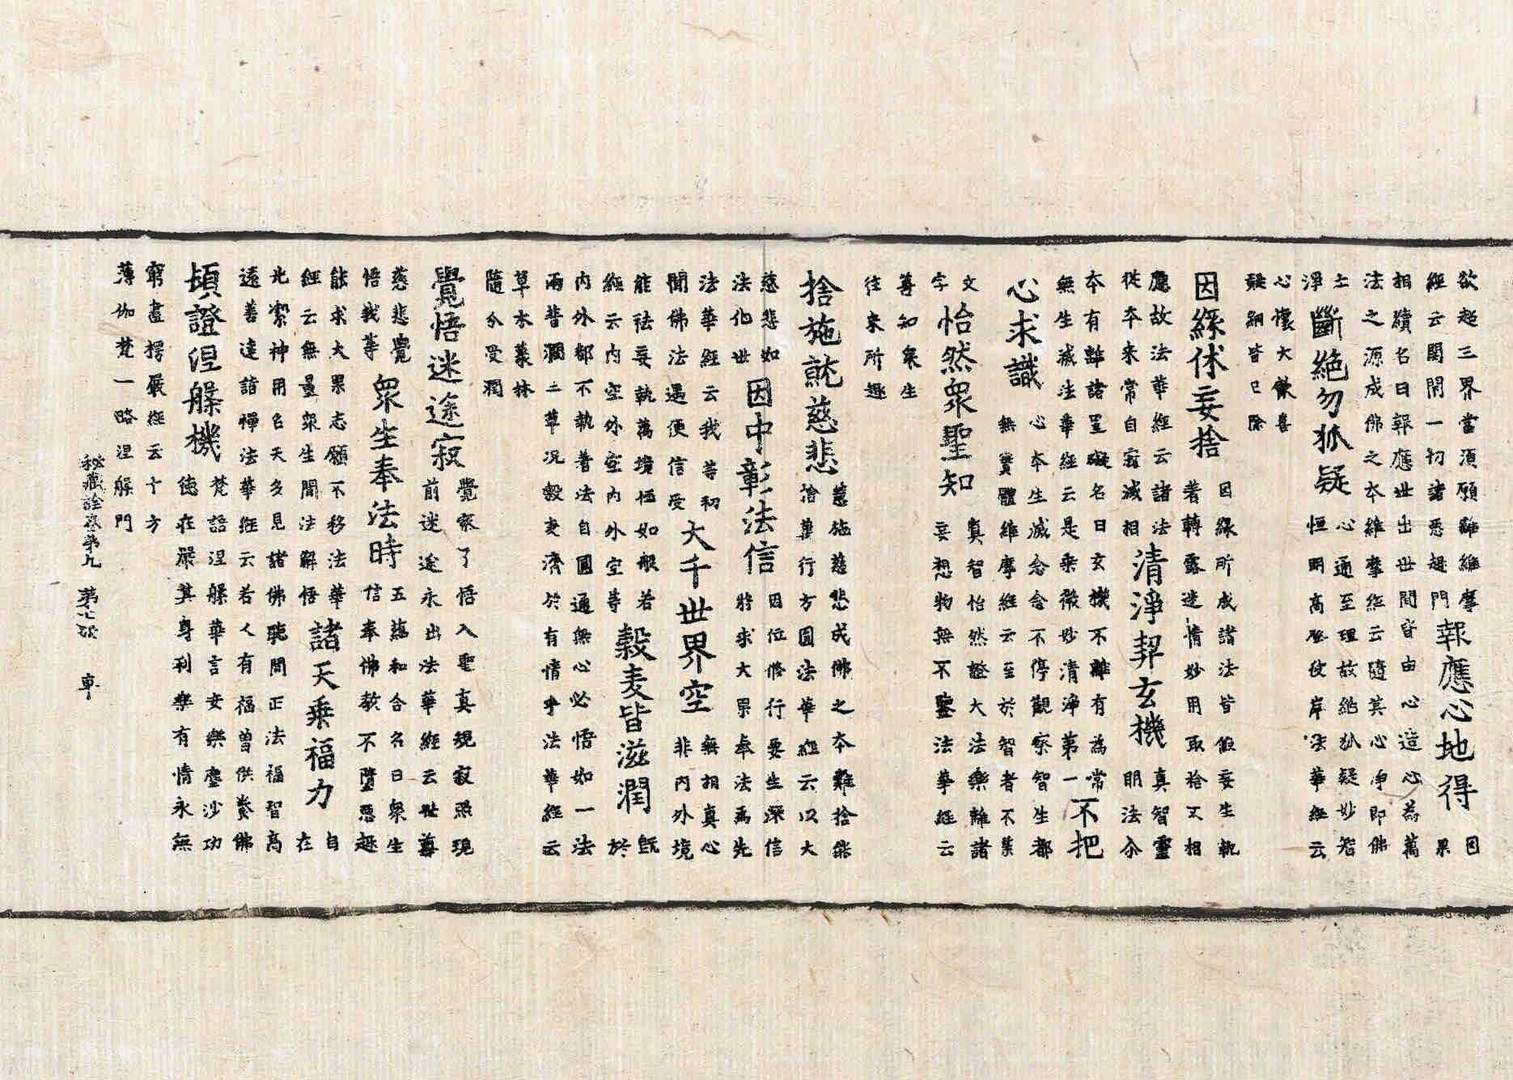 欲超三界當須願離維摩
經云開閉一切諸惡趣門
報應心地得
因
果
相續名曰報應世出世間皆由心這心為萬
法之源成佛之本維摩經云隨其心淨即佛
土
淨
斷絕勿狐疑
心通至理故絕狐疑妙智
恒明高登彼岸法華經云
心懷大歡喜
疑網皆已除
因緣休妄捨
因緣所成諸法皆假妄生執
著轉露迷情妙用取捨不相
應故法華經云諸法
從本來常自寂滅相
清淨契玄機
真智靈
明法尒
本有離諸罣礙名曰玄機不離有為常
無生滅法華經云是乘微妙清淨第一
不把
心求識
心本生滅念念不停觀察智生都
無實體維摩經云至於智者不業
文
字
怡然眾聖知
真智怡然證大法樂離諸
妄想物無不鑒法華經云
尊知眾生
往來所趣
捨施就慈悲
慈施慈悲成佛之本難捨能
捨萬行方圓法華經云以大
慈悲如
法化世
因中彰法信
因位修行要生深信
將求大果奉法為先
法華經云我等初
聞佛法遇便信受
大千世界空
無相真心
非內外境
能祛妄執萬境恒如般若
經云內空外空內外空等
穀麦皆滋潤
既
於
內外都不執著法自圓通無心必悟如一法
雨普潤二草況穀麦濟於有情乎法華經云
草木叢林
隨分受潤
覺悟迷途寂
覺察了悟入聖真規寂照現
前迷途永出法華經云世尊
慈悲覺
悟我等
眾生奉法時
五蘊和合名曰眾生
信奉佛教不墮惡趣
能求大果志願不移法華
經云無量眾生聞法解悟
諸天乘福力
自
在
光潔神用名天多見諸佛聽聞正法福智高
遠善達諸禪法華經云若人有福曾供養佛
頓證涅槃機
梵語涅槃華言安樂塵沙功
德在嚴其身利樂有情永無
窮盡楞嚴經云十方
薄伽梵一路涅槃門
秘藏詮卷第九 第七張 車